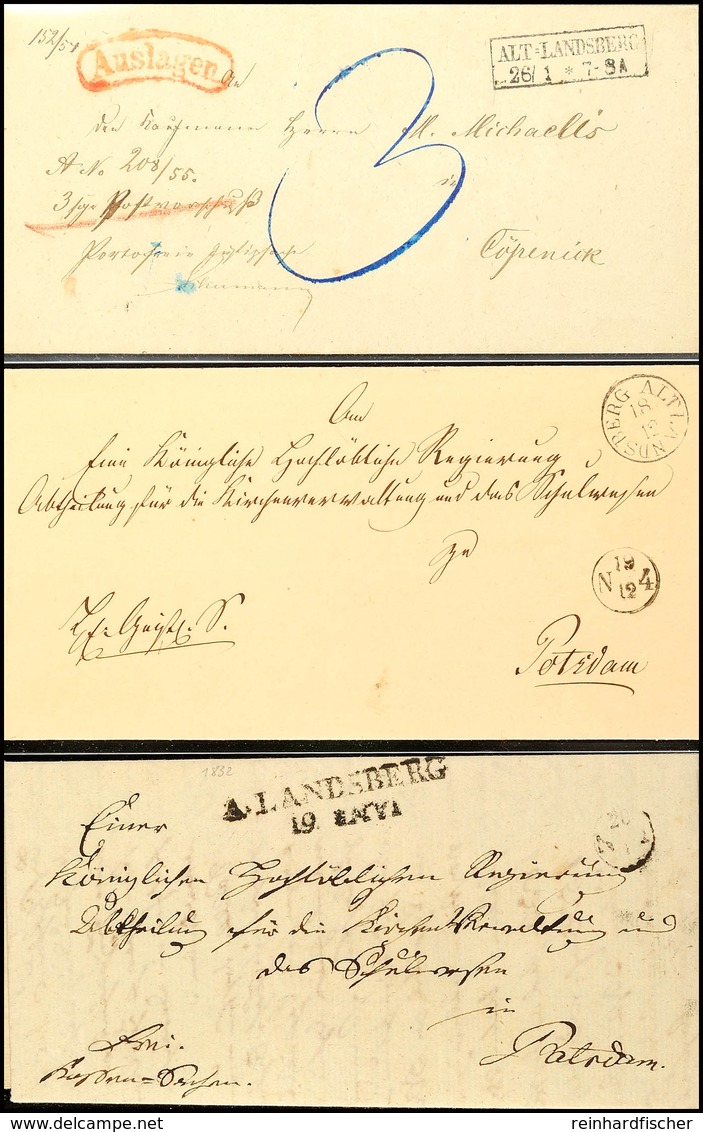 152/54
Auslagen
ALT-LANDSBERG
26/1 * 7-8A
An
den Kaufmann Herrn M. Michaelis
A No 208/55.
in
3 sgr Postvorschuß
3
Portofreie Justizsache
Cöpenick
ALT LANDSBERG
18
12
An
Eine Königliche Hochlöbliche Regierung
Abtheilung für die Kirchenverwaltung und das Schulwesen
zu
19
N 4
12
Potsdam
1832
A. LANDSBERG
19
20
N
Einer
Königlichen Hochlöblichen Regierung
Abtheilung für die Kirchen Verwaltung und
das Schulwesen
in
Frei.
Potsdam.
reinhardfischer